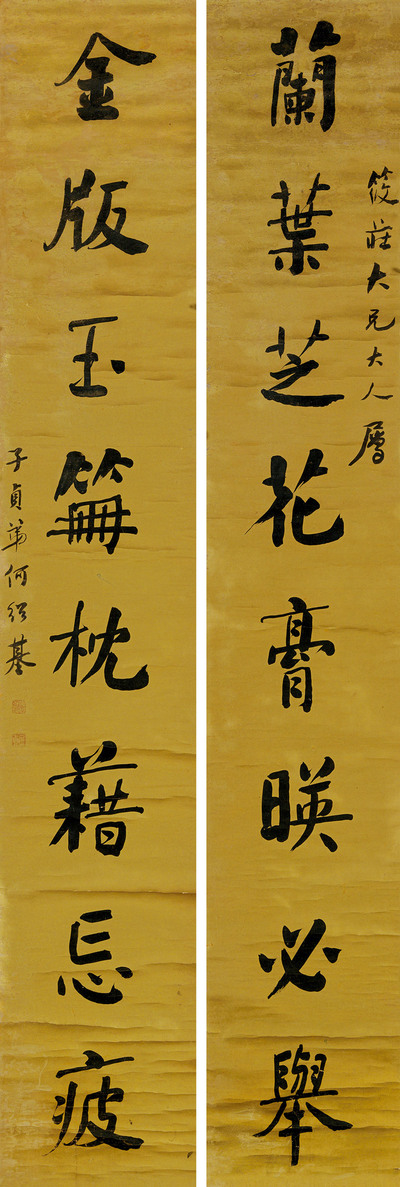 筱莊大兄大人屬
蘭葉芝花膏暎必舉
金版玉笧枕藉忘疲
子貞弟何紹基